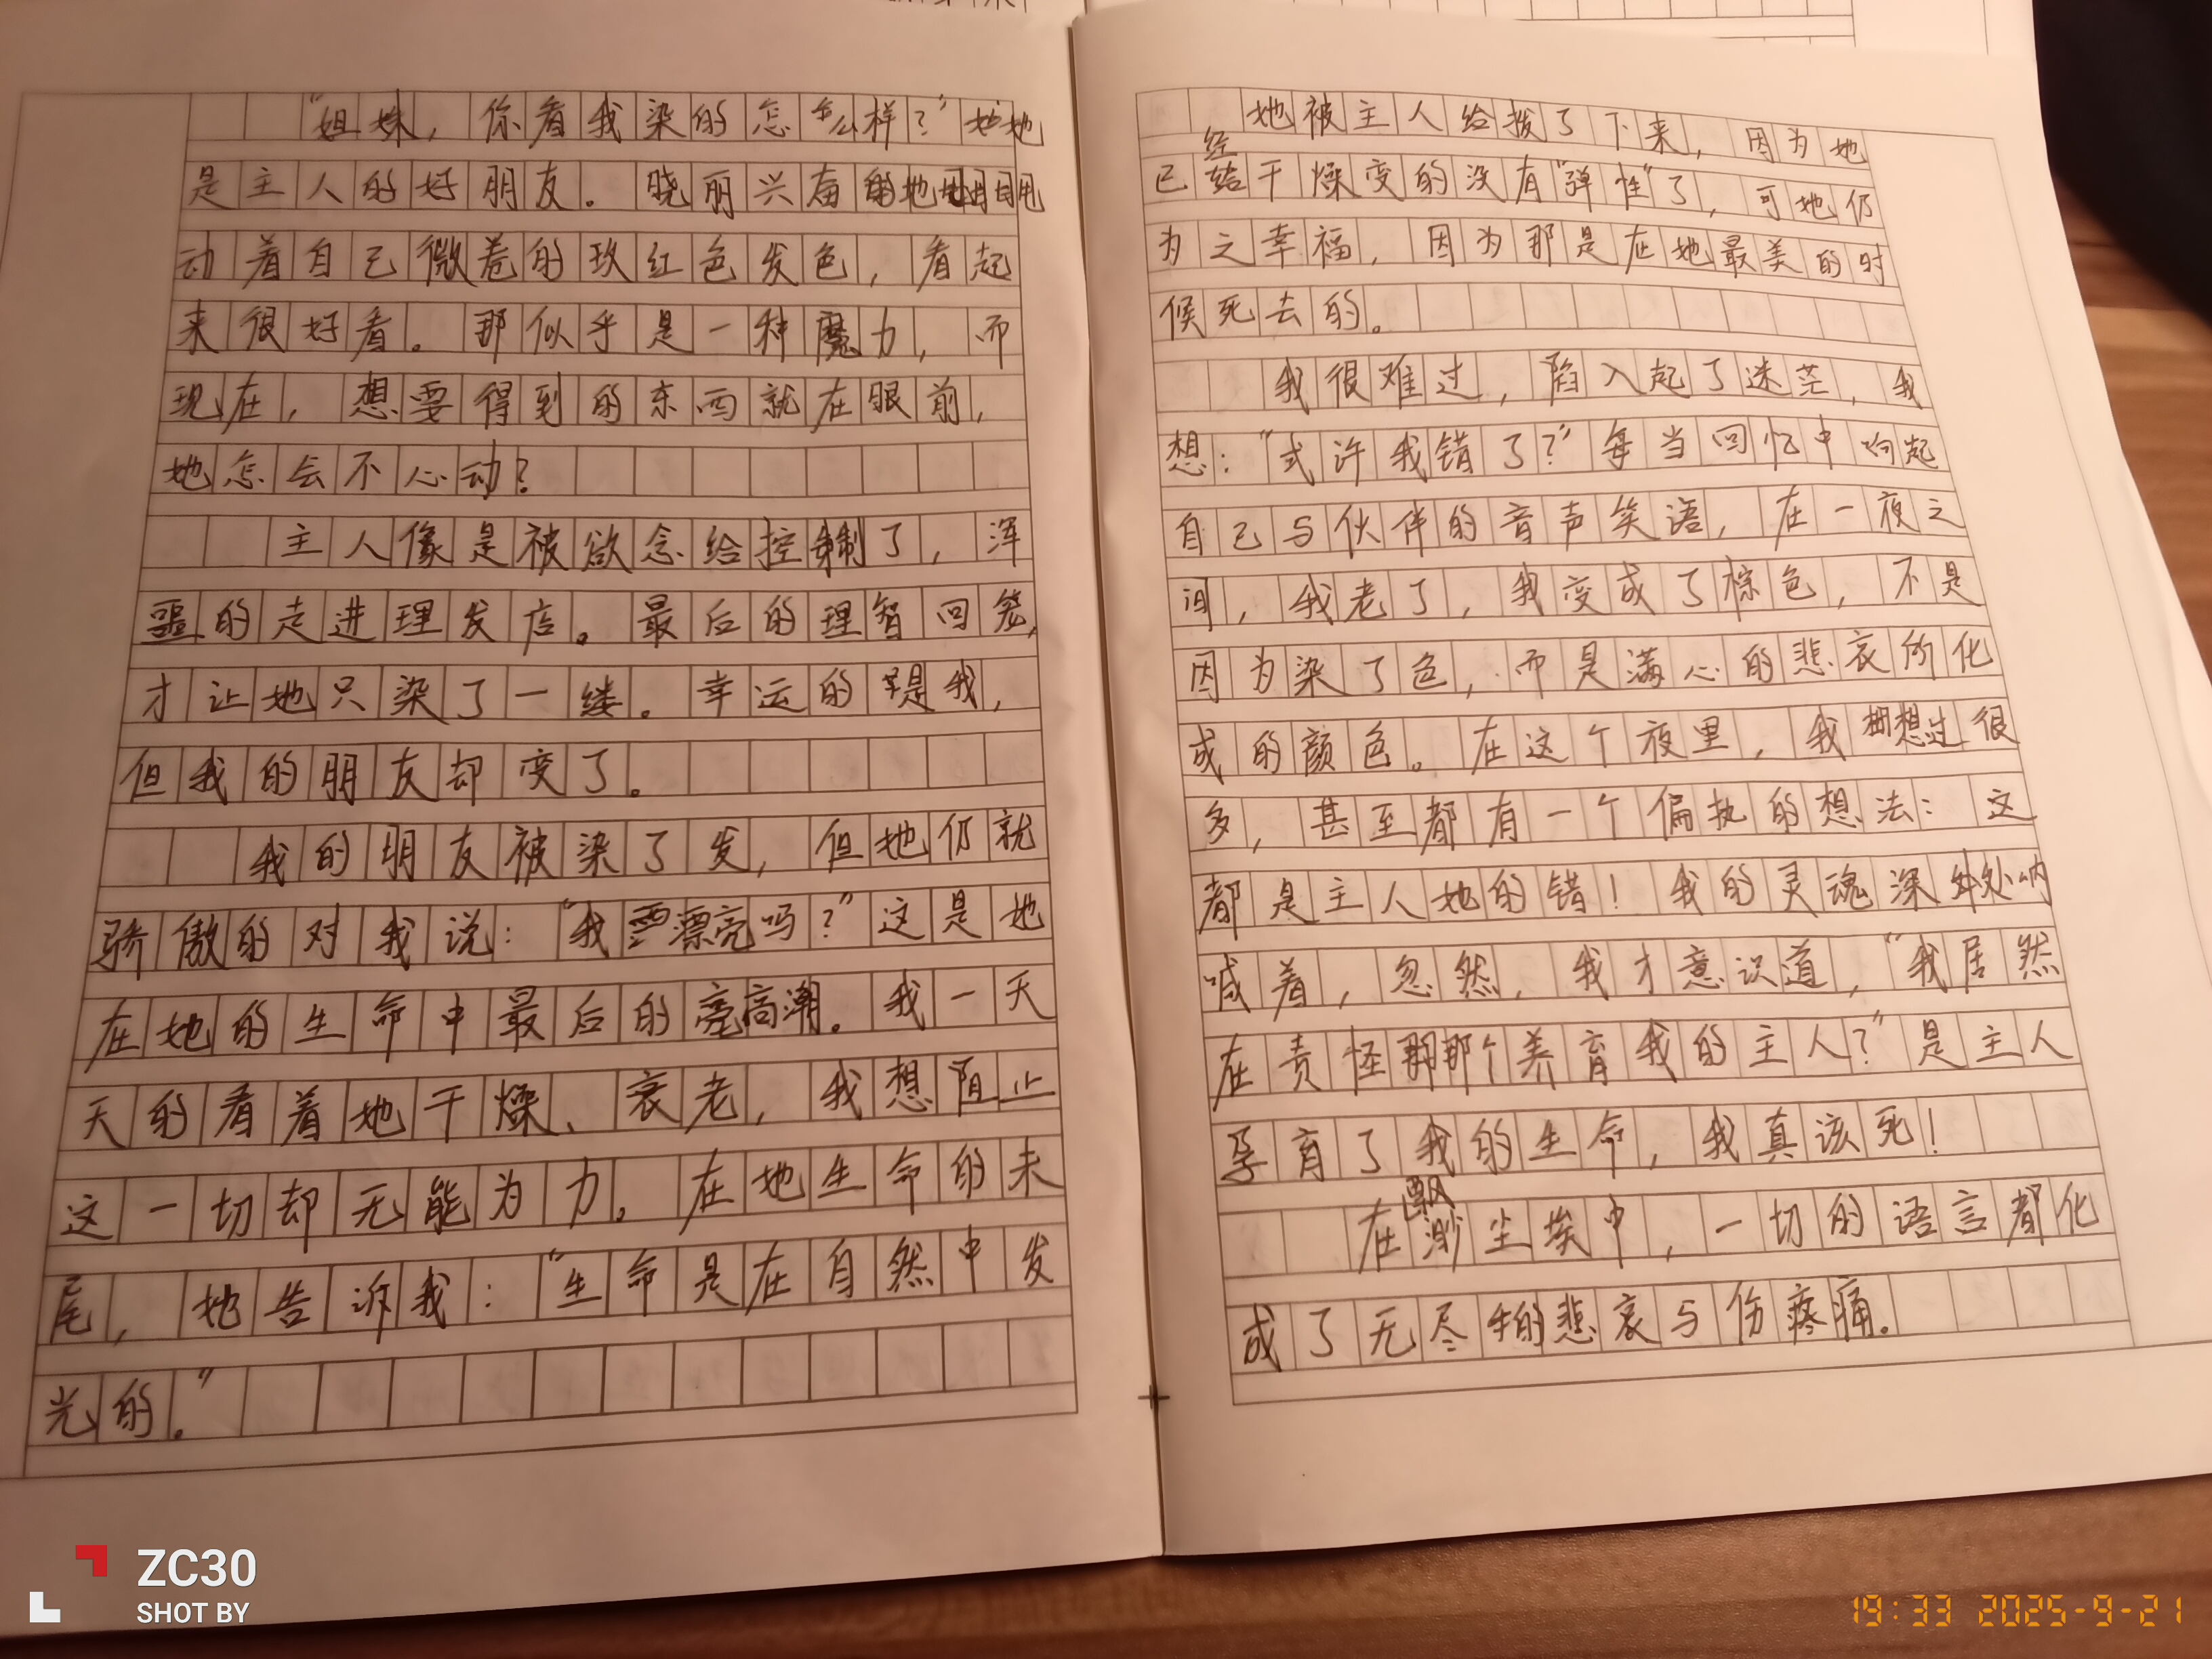 "姐妹，你看我染的怎么样？"她
是主人的好朋友。晓丽兴奋地甩
动着自己微卷的玫红色发色，看起
来很好看。那似乎是一种魔力，而
现在，想要得到的东西就在眼前，
她怎会不心动？
主人像是被欲念给控制了，浑
噩的走进理发店。最后的理智回笼，
才让她只染了一缕。幸运的是我，
但我的朋友却变了。
我的朋友被染了发，但她仍就
骄傲的对我说："我漂亮吗？"这是她
在她的生命中最后的高潮。我一天
天的看着她干燥、衰老，我想阻止
这一切却无能为力。在她生命的末
尾，她告诉我："生命是在自然中发
光的。"
她被主人给拨了下来，因为她
已经干燥变的没有"弹性"了，可她仍
为之幸福，因为那是在她最美的时
候死去的。
我很难过，陷入起了迷茫，我
想："或许我错了？"每当回忆中响起
自己与伙伴的音声笑语，在一夜之
间，我老了，我变成了棕色，不是
因为染了色，而是满心的悲哀所化
成的颜色。在这个夜里，我想过很
多，甚至都有一个偏执的想法：这
都是主人她的错！我的灵魂深处呐
喊着，忽然，我才意识道，"我居然
在责怪那个养育我的主人？"是主人
孕育了我的生命，我真该死！
在飘渺尘埃中，一切的语言都化
成了无尽的悲哀与伤疼痛。
ZC30
SHOT BY
19:33 2025-9-21